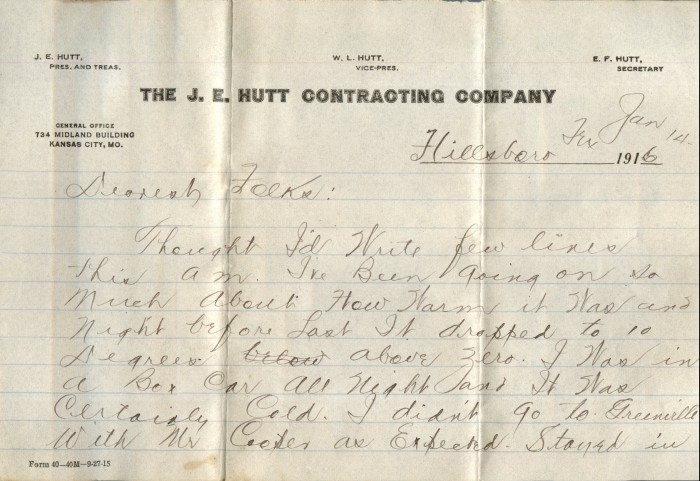 J. E. HUTT,
PRES. AND TREAS.
W. L. HUTT,
VICE-PRES.
E. F. HUTT,
SECRETARY
THE J. E. HUTT CONTRACTING COMPANY
GENERAL OFFICE
734 MIDLAND BUILDING
KANSAS CITY, MO.
Jan 14.
Hillsboro Tex 1916
Dearest Folks:
Thought I'd Write few lines
this a m. I've Been going on so
Much About How Warm it Was and
Night before Last It dropped to 10
Degrees below above Zero. I Was in
a Box Car All Night and It Was
Certainly Cold. I didn't go to Greenville
With Mr Cooper as Expected. Stayed in
Form 40—40M—9-27-15